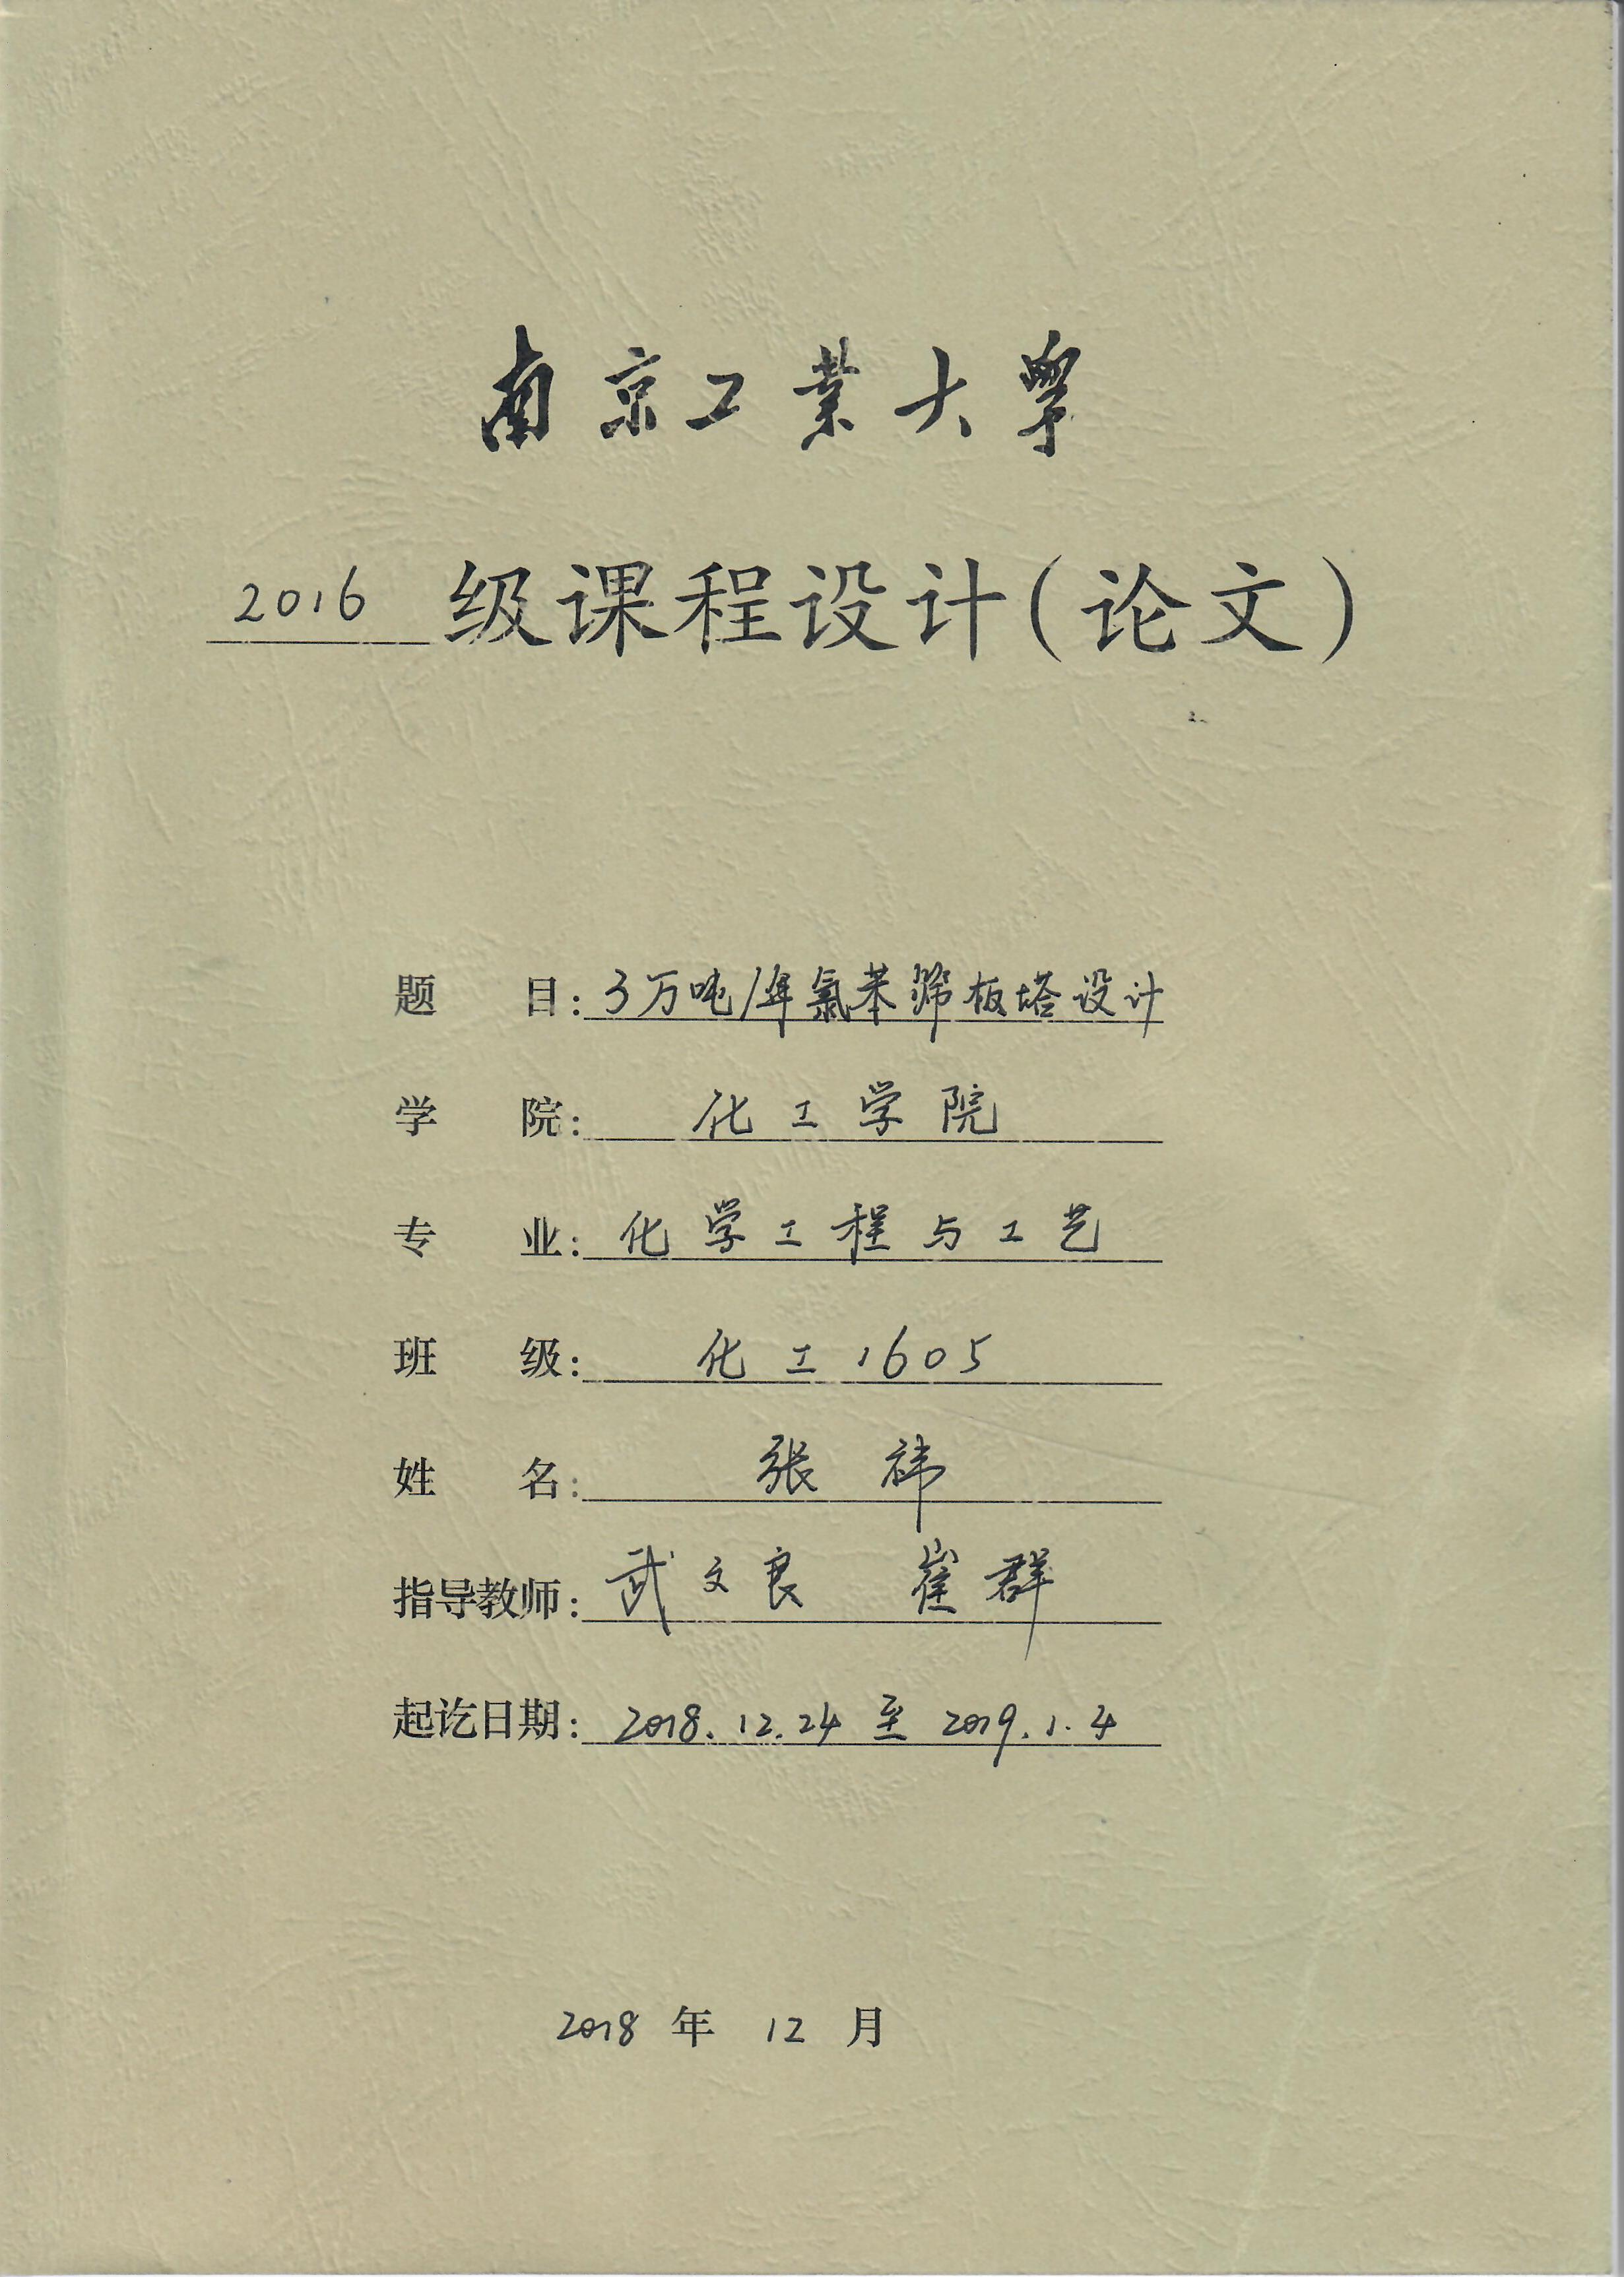 南京工业大学
2016级课程设计(论文)
题目:3万吨/年氯苯筛板塔设计
学院:化工学院
专业:化学工程与工艺
班级:化工1605
姓名:张祎
指导教师:武文良 崔群
起讫日期:2018.12.24至2019.1.4
2018年12月